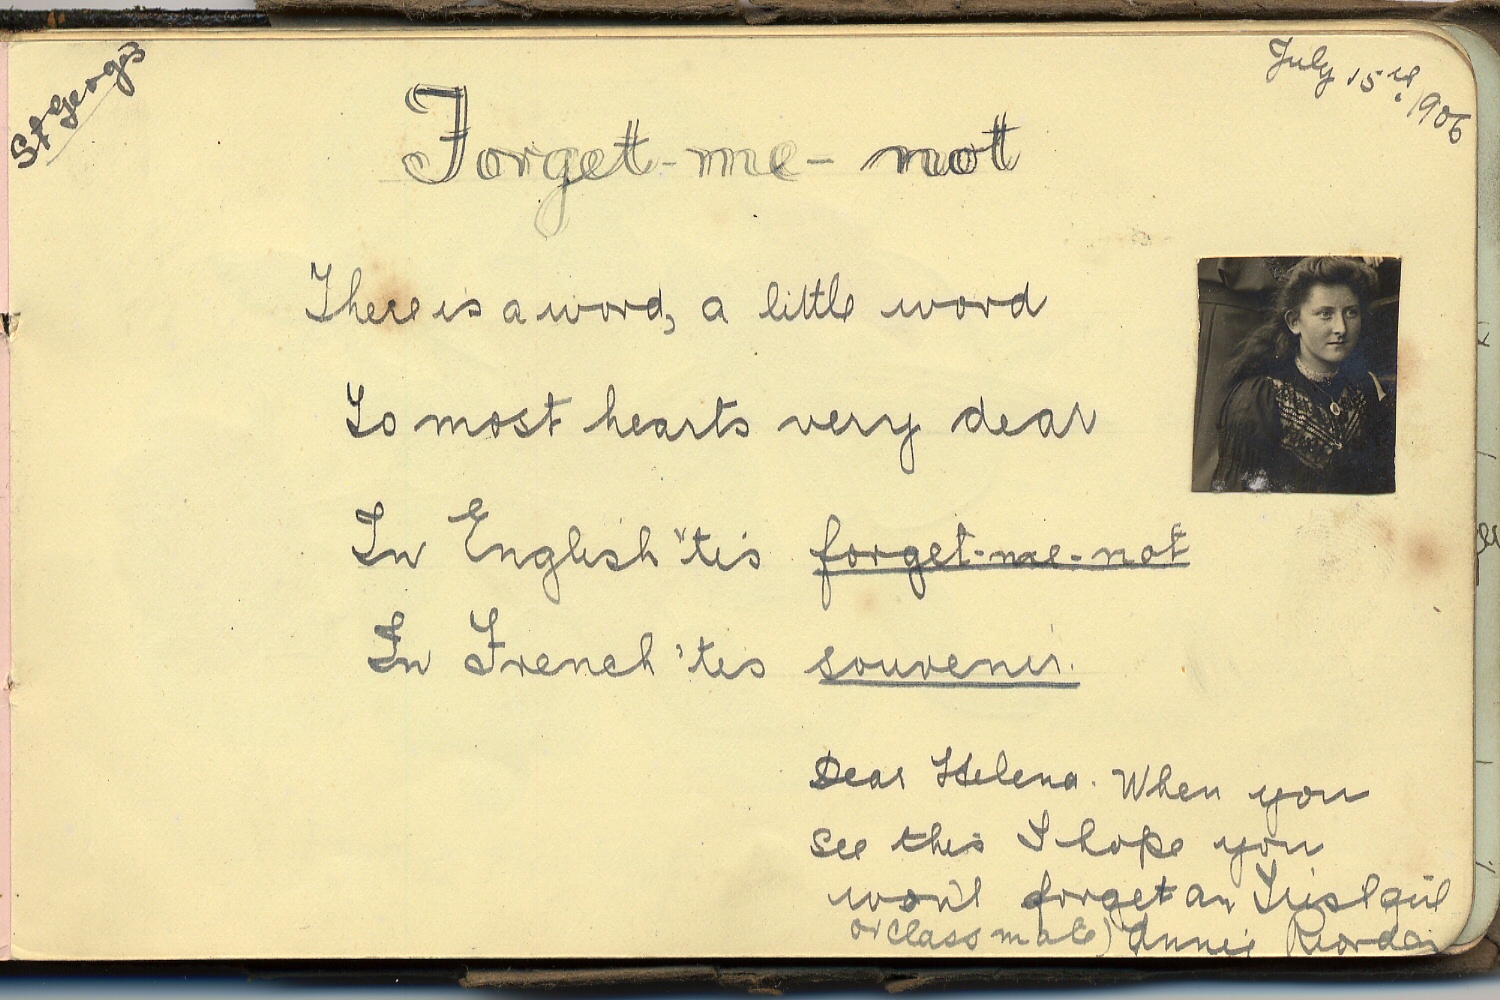 St Georg's
July 15th, 1906
Forget-me-not
There is a word, a little word
To most hearts very dear
In English 'tis forget-me-not
In French 'tis souvenir.
Dear Helena. When you
see this I hope you
won't forget an Irish girl
or class mate) Annie Riordan